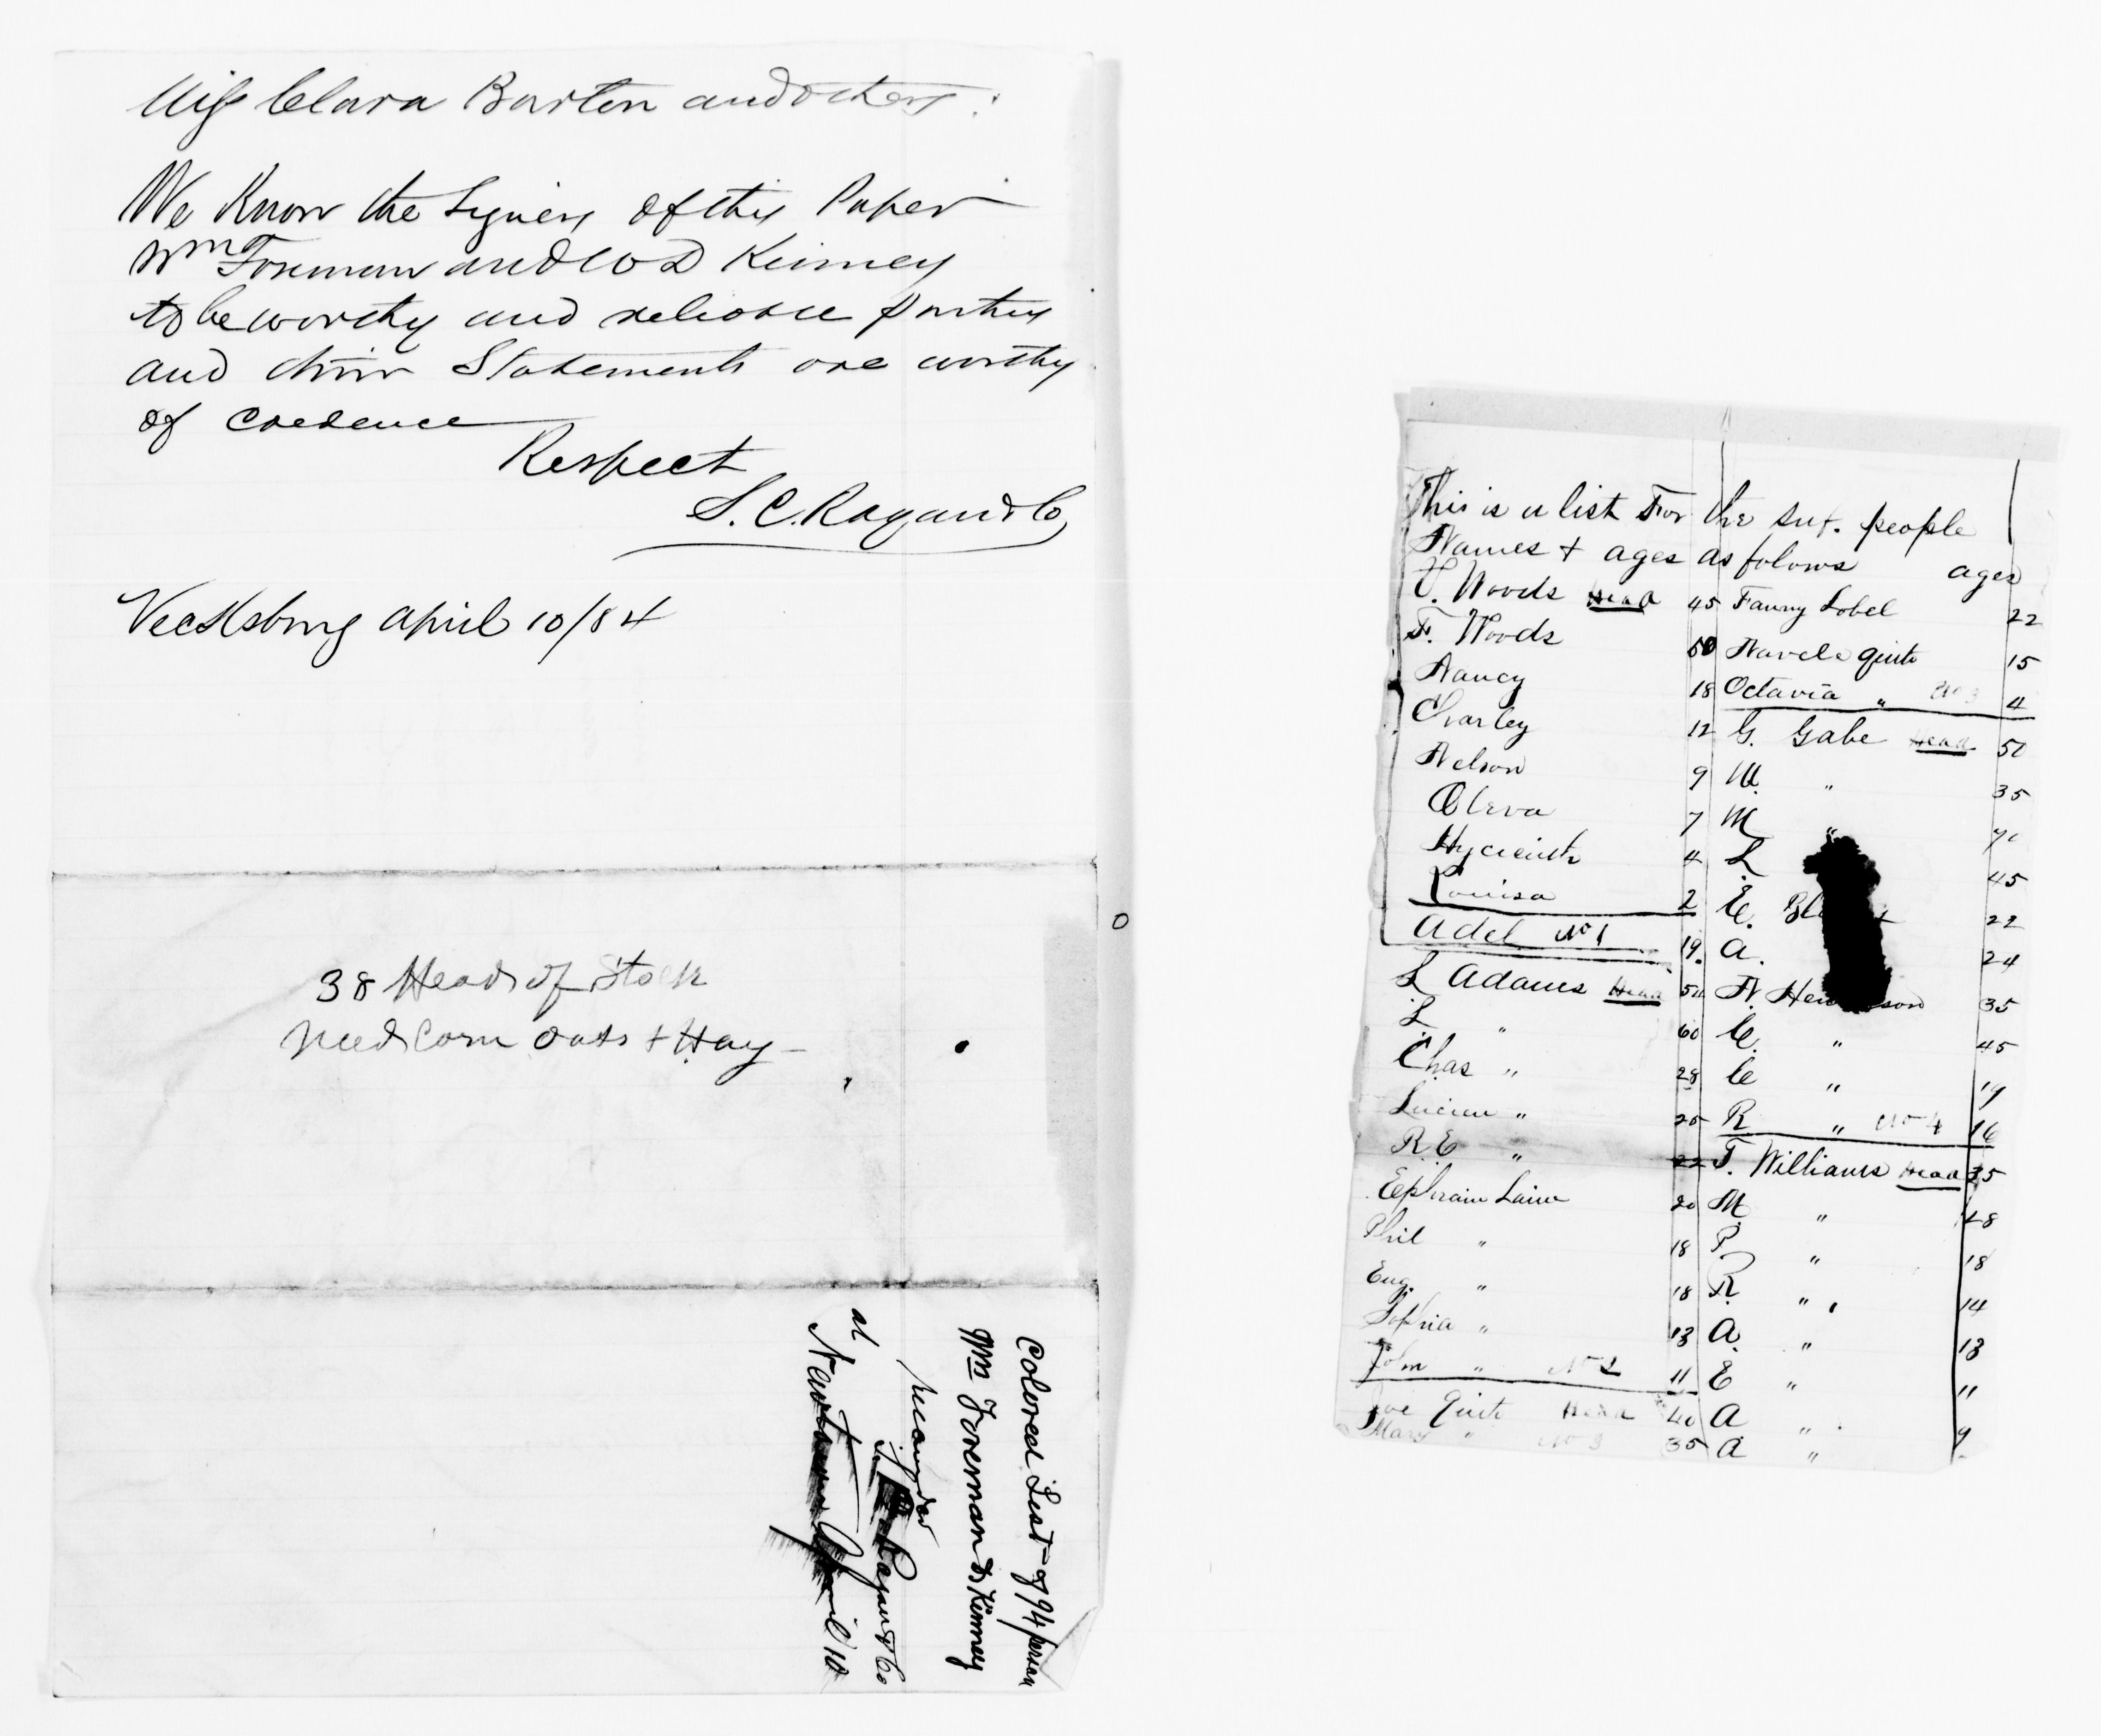 Miss Clara Barton and others:
We Know the Signers of this Paper
Wm Foreman and W D Kinney
to be worthy and reliable parties
and their Statements are worthy
of credence
Respect
S. C. Ragan & Co
Vecksburg april 10/84
38 Head of Stock
need Corn Oats + Hay -
Colored List of 94 person
Wm Foreman D. Kinney
recomended
Ragan & Co
at Newtown April 10
This is a list For the suf. people
Names + ages as folows ages
Woods Head 45
F. Woods 50
Nancy 18
Charley 12
Nelson 9
Cleva 7
Hycienth 4
Louisa 2
Adel No 1 19.
L Adams Head 50
L " 60
Chas " 28
Lucien " 25
R. E " 22
Ephraim Laim 20
Phil " 18
Eug. " 18
Sophia " 13
John " No 2 11
Joe Quite Head 40
Mary " No 3 35
Fanny Lobel 22
Quite 15
Octavia " No 3 4
G. Gabe Head 50
W. " 35
M "
L 45
E. 22
A. 24
N. 35
C. " 45
C " 19
R " No 4 16
T. Williams Head 35
M. " 28
P. " 18
R. " 14
A. " 13
E " 11
A " 9
A "